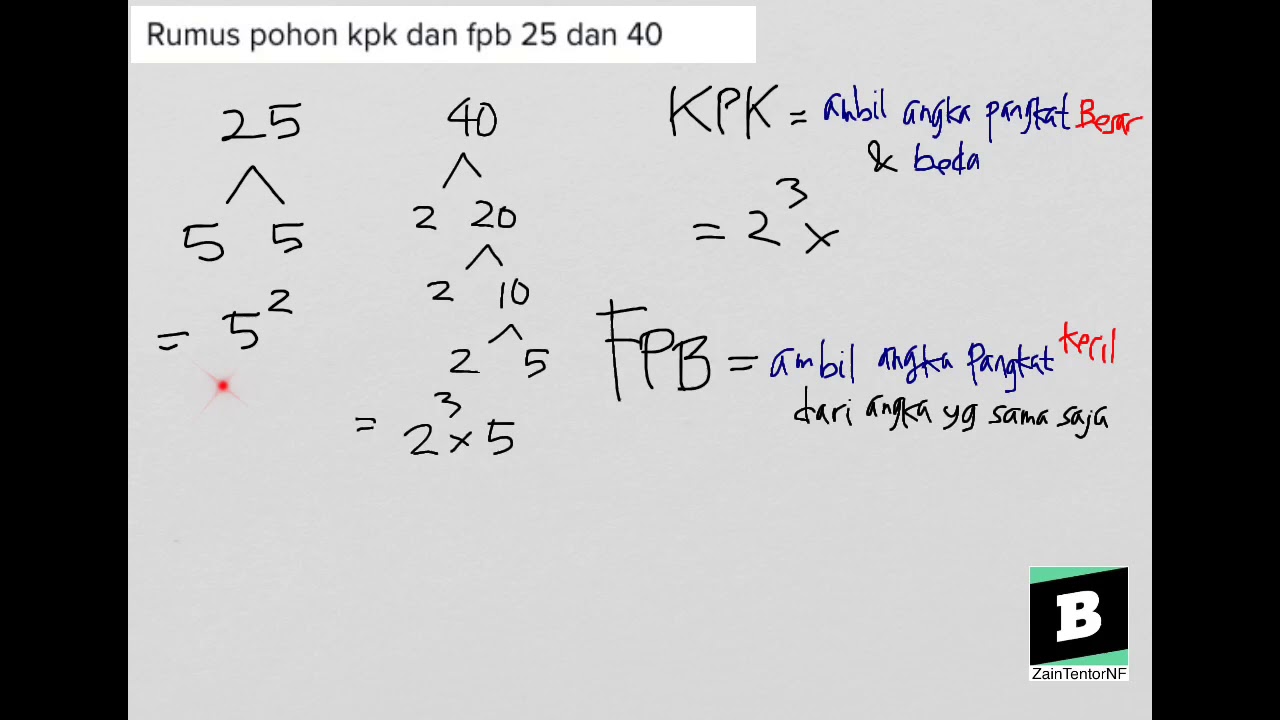 Rumus pohon kpk dan fpb 25 dan 40
25
5 5
= 5²
40
2 20
2 10
2 5
= 2³ x 5
KPK = ambil angka pangkat Besar
& beda
= 2³ x
FPB = ambil angka pangkat kecil
dari angka yg sama saja
B
ZainTentorNF